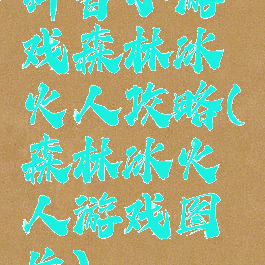 小游
戏森林冰
火人攻略(
森林冰火
人游戏图
片)